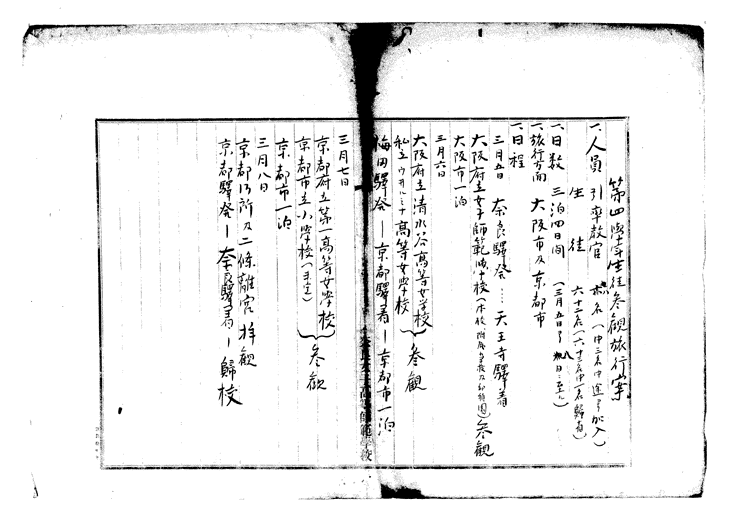 第四學年生徒参觀旅行案
一、人員 引率教官 名(中三名中途ヨリ加入)
生徒 六十二名(六十三名中一名歸省)
一、日数 三泊四日間(三月五日ヨリ八日ニ至ル)
一、旅行方面 大阪市及京都市
一、日程
三月五日 奈良驛發…天王寺驛着
大阪府立女子師範學校(本校、附属學校及幼稚園)参觀
大阪市一泊
三月六日
大阪府立清水谷高等女學校
私立ウヰルミナ高等女學校 参觀
梅田驛發―京都驛着―京都市一泊
三月七日
京都府立第一高等女學校
京都市立小學校(未定) 参觀
京都市一泊
三月八日
京都御所及二條離宮拝觀
京都驛發―奈良驛着―歸校
高等師範学校